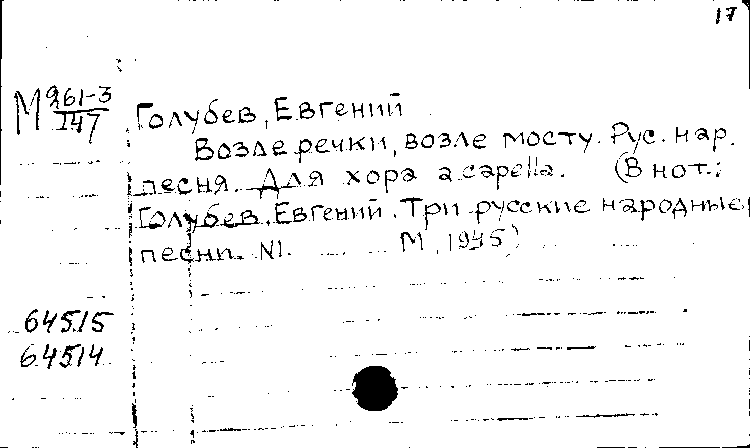 17
М 961-3
147
Голубев, Евгений
Возле речки, возле мосту. Рус. нар.
песня. Для хора a capella. (В нот.:
Голубев, Евгений. Три русские народные
песни. N1. М, 1945)
64515
64514